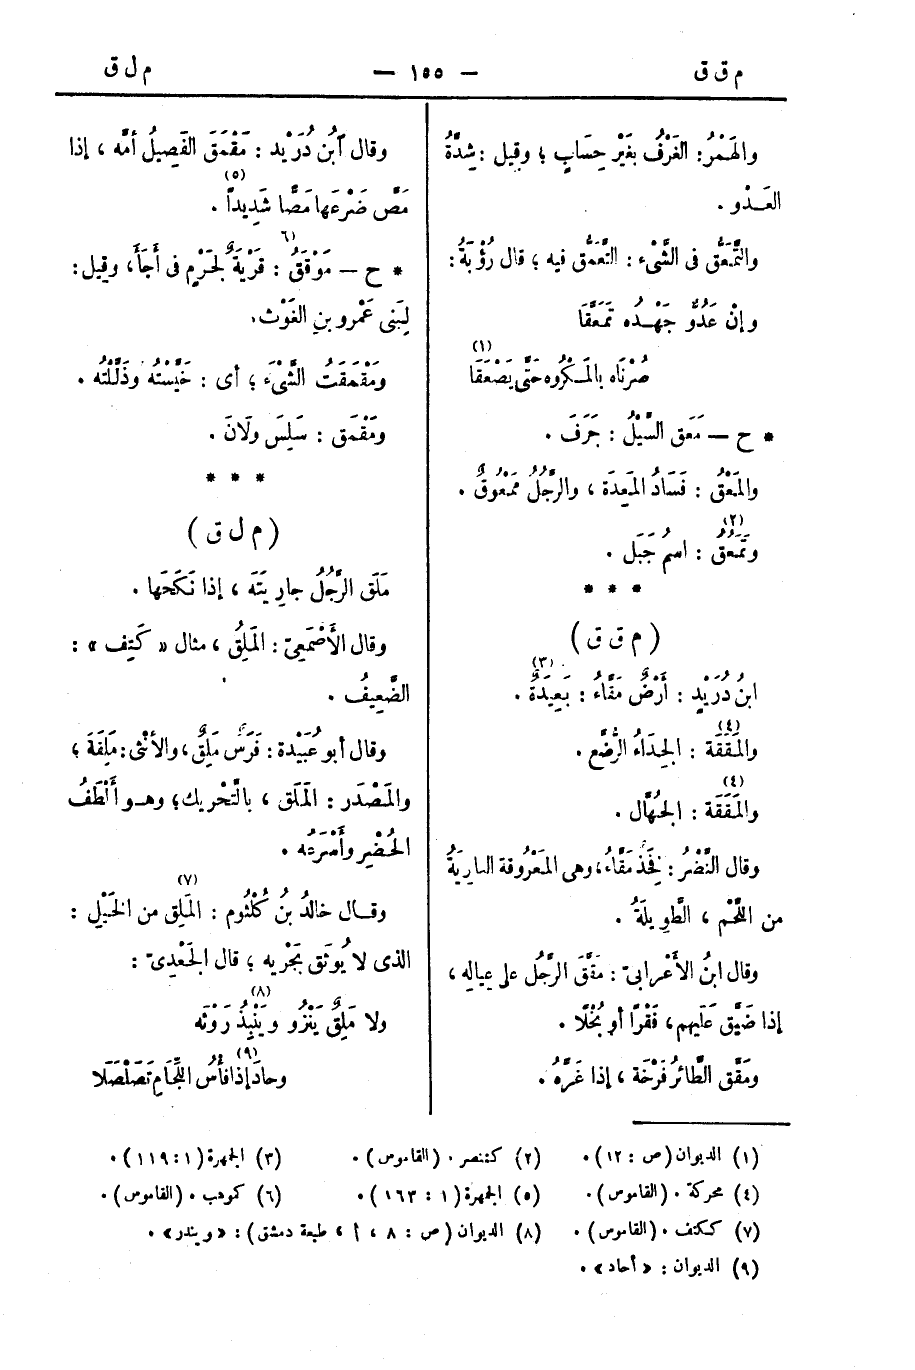 م ق ق — ١٥٥ — م ل ق
والهَمْرُ: الغَرْفُ بغَيْرِ حِسَابٍ ؛ وقيل : شِدَّةُ
العَدْو .
والتَّمَعُّق فى الشَّىْء : التَّعَمُّق فيه ؛ قال رُؤْبَةُ :
وإنْ عَدُوٌّ جَهْدُه تَمَعَّقَا
صُرْنَاه بالمَكْرُوه حتَّى يَصْعَقَا (١)
* ح — مَعَق السَّيْلُ : جَرَفَ .
والمَعْقُ : فَسَادُ المَعِدَة ، والرَّجُلُ مَمْعُوقٌ .
وتَمْعَقُ (٢) : اسمُ جَبَل .
* * *
( م ق ق )
ابنُ دُرَيْدٍ : أَرْضٌ مَقَّاءُ (٣) : بَعِيدَةٌ .
والمَقَقَة (٤) : الجِدَاءُ الرُّضَّع .
والمَقَقَة (٤) : الجُهَّال .
وقال النَّضْرُ : فَخِذ مَقَّاءُ ، وهى المَعْرُوقة العارِيَةُ
من اللَّحْم ، الطَّوِيلَةُ .
وقال ابنُ الأَعْرابىّ : مَقَّقَ الرَّجُل على عِيالِه ،
إذا ضَيَّق عَلَيهم ، فَقْرًا أو بُخْلًا .
ومَقَّق الطَّائرُ فَرْخَة ، إذا غَرَّهُ .
وقال ٱبنُ دُرَيْد : مَقْمَقَ الفَصِيلُ أمَّه ، إذا
مَصَّ ضَرْعَها مَصًّا شَدِيداً (٥) .
* ح — مَوْقَقُ (٦) : قريةٌ لجَرْمٍ فى أَجَأَ ، وقيل :
لِبَنى عَمْرو بنِ الغَوْث .
ومَقْمَقتُ الشَّىْءَ ؛ أى : خَيَّسْتُه وذَلَّلتُه .
ومَقْمَق : سَلِسَ ولَانَ .
* * *
( م ل ق )
مَلَق الرَّجُلُ جارِيتَه ، إذا نَكَحَها .
وقال الأَصْمَعِىّ : المَلِقُ ، مثال « كَتِف » :
الضَّعِيفُ .
وقال أبو عُبَيْدة : فَرَسٌ مَلِقٌ ، والأنْثى : مَلِقَة ؛
والمَصْدَر : المَلَق ، بالتَّحْرِيك ؛ وهو أَلْطَفُ
الحُضْرِ وأَسْرَعُه .
وقال خالدُ بنُ كُلْثُوم : المَلِق (٧) من الخَيْلِ :
الذى لا يُوثَق بَجَرْيِه ؛ قال الجَعْدِىّ :
ولا مَلِقٌ يَنْزُو ويَنْبِذُ (٨) رَوْثَه
وحادَ (٩) إذا فَأْسُ اللِّجَامِ تَصَلْصَلَا
(١) الديوان (ص : ١٢) . (٢) كتنصر . (القاموس) . (٣) الجمهرة (١ : ١١٩) .
(٤) محركة . (القاموس) . (٥) الجمهرة (١ : ١٦٣) . (٦) كموهب . (القاموس) .
(٧) ككتف . (القاموس) . (٨) الديوان (ص : ٨ ، أ ، طبعة دمشق) : « ويندر » .
(٩) الديوان : « أحاد » .